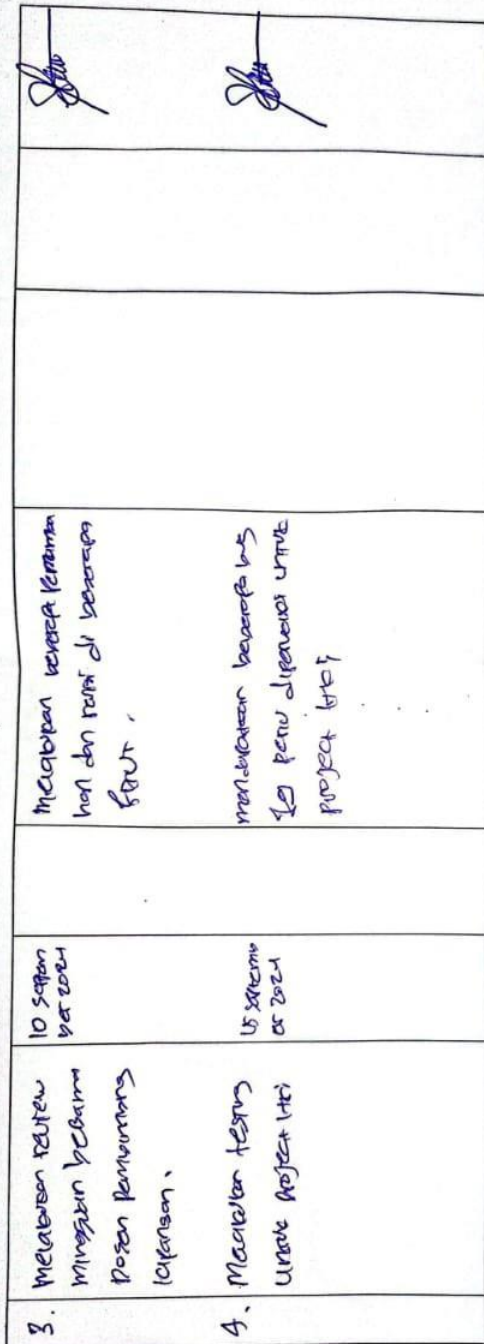 3.
melakukan review
mingguan bersama
Dosen Pembimbing
lapangan.
10 Septem
ber 2024
melakukan beberapa Penamba
han dan revisi di beberapa
fitur.
4.
Melakukan testing
untuk project
Septemb
er 2024
mendapatkan beberapa bug
yg perlu diperbaiki untuk
project